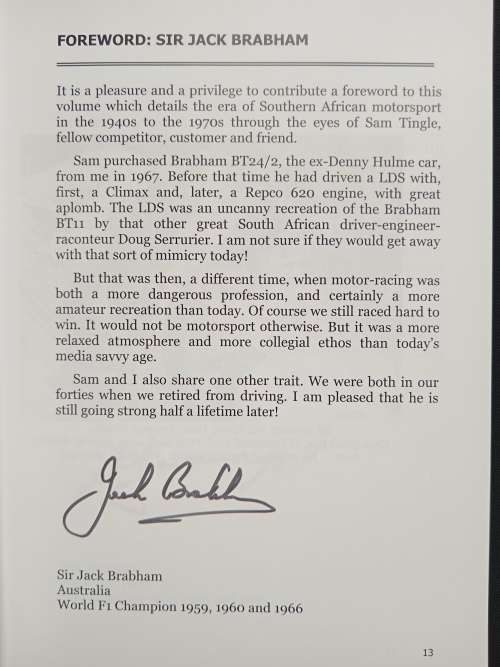 FOREWORD: SIR JACK BRABHAM
It is a pleasure and a privilege to contribute a foreword to this
volume which details the era of Southern African motorsport
in the 1940s to the 1970s through the eyes of Sam Tingle,
fellow competitor, customer and friend.
Sam purchased Brabham BT24/2, the ex-Denny Hulme car,
from me in 1967. Before that time he had driven a LDS with,
first, a Climax and, later, a Repco 620 engine, with great
aplomb. The LDS was an uncanny recreation of the Brabham
BT11 by that other great South African driver-engineer-
raconteur Doug Serrurier. I am not sure if they would get away
with that sort of mimicry today!
But that was then, a different time, when motor-racing was
both a more dangerous profession, and certainly a more
amateur recreation than today. Of course we still raced hard to
win. It would not be motorsport otherwise. But it was a more
relaxed atmosphere and more collegial ethos than today's
media savvy age.
Sam and I also share one other trait. We were both in our
forties when we retired from driving. I am pleased that he is
still going strong half a lifetime later!
Jack Brabham
Sir Jack Brabham
Australia
World F1 Champion 1959, 1960 and 1966
13